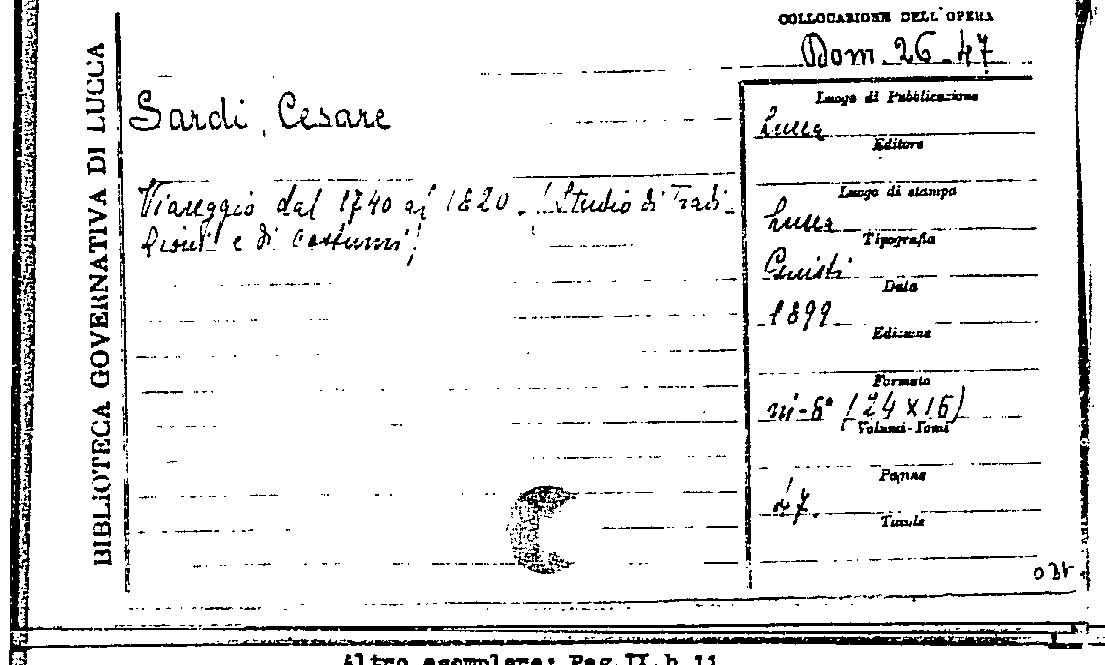 COLLOCAZIONE DELL'OPERA
Dom. 26-47
BIBLIOTECA GOVERNATIVA DI LUCCA
Sardi, Cesare
Viareggio dal 1740 al 1820. (Studio di Tradi-
zioni e di costumi)
Luogo di Pubblicazione
Lucca
Editore
Luogo di stampa
Lucca
Tipografia
Giusti
Data
1899
Edizione
Formato
in-8° (24 x 16)
Volumi-Tomi
Pagine
47.
Tavole
Altro esemplare: Pag.IX.b 11